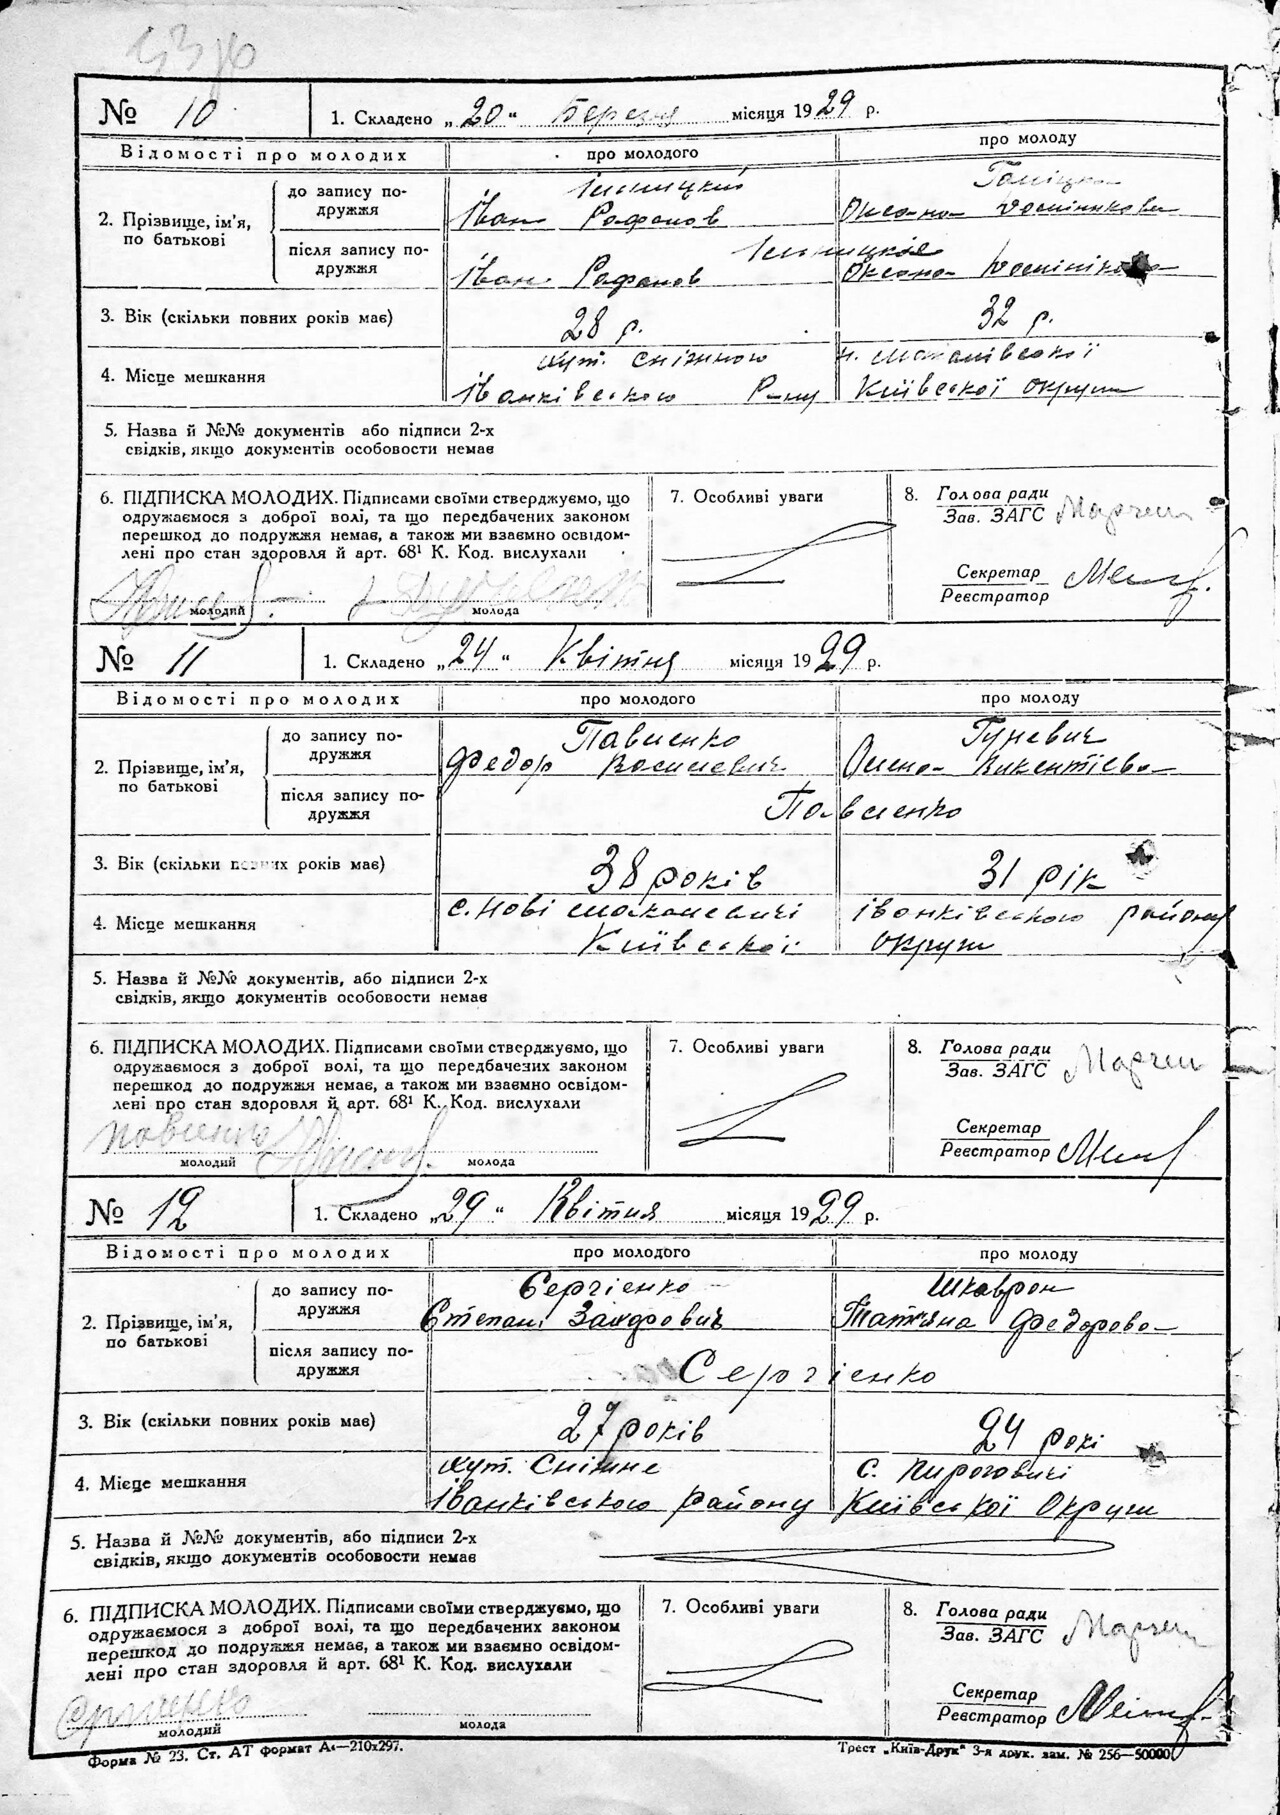 № 10 1. Складено „20“ Березня місяця 1929 р.
Відомості про молодих про молодого про молоду
2. Прізвище, ім’я, по батькові
до запису подружжя
Іван Рафалов
Оксана Домініков
після запису подружжя
Іван Рафалов Оксана
3. Вік (скільки повних років має) 28 р. 32 р.
4. Місце мешкання
хут. Сніжною
Іванківського Р-ну Київської округи
5. Назва й №№ документів або підписи 2-х
свідків, якщо документів особовости немає
6. ПІДПИСКА МОЛОДИХ. Підписами своїми стверджуємо, що
одружаємося з доброї волі, та що передбачених законом
перешкод до подружжя немає, а також ми взаємно освідом-
лені про стан здоровля й арт. 68¹ К. Код. вислухали
молодий молода
7. Особливі уваги
8. Голова ради
Зав. ЗАГС
Секретар
Реєстратор
№ 11 1. Складено „24“ Квітня місяця 1929 р.
Відомості про молодих про молодого про молоду
2. Прізвище, ім’я,
по батькові
до запису по-
дружжя
Павленко Гуневич
Федор Василевич Олена Викентієва
після запису по-
дружжя
Павленко
3. Вік (скільки повних років має) 38 років 31 рік
4. Місце мешкання
с. Нові Макалевичі Іванківського району
Київської округи
5. Назва й №№ документів, або підписи 2-х
свідків, якщо документів особовости немає
6. ПІДПИСКА МОЛОДИХ. Підписами своїми стверджуємо, що
одружаємося з доброї волі, та що передбачених законом
перешкод до подружжя немає, а також ми взаємно освідом-
лені про стан здоровля й арт. 68¹ К. Код. вислухали
Павленко
молодий молода
7. Особливі уваги
8. Голова ради
Зав. ЗАГС
Секретар
Реєстратор
№ 12 1. Складено „29“ Квітня місяця 1929 р.
Відомості про молодих про молодого про молоду
2. Прізвище, ім’я,
по батькові
до запису по-
дружжя
Сергієнко Шкаврон
Степан Татяна Федорова
після запису по-
дружжя
Сергієнко
3. Вік (скільки повних років має) 27 років 24 рокі
4. Місце мешкання
хут. Сніжне с. Пироговичі
Іванківського району Київської Округи
5. Назва й №№ документів, або підписи 2-х
свідків, якщо документів особовости немає
6. ПІДПИСКА МОЛОДИХ. Підписами своїми стверджуємо, що
одружаємося з доброї волі, та що передбачених законом
перешкод до подружжя немає, а також ми взаємно освідом-
лені про стан здоровля й арт. 68¹ К. Код. вислухали
молодий молода
7. Особливі уваги
8. Голова ради
Зав. ЗАГС
Секретар
Реєстратор
Форма № 23. Ст. АТ формат А₄—210x297.
Трест „Київ-Друк“ 3-я друк. зам. № 256—50000